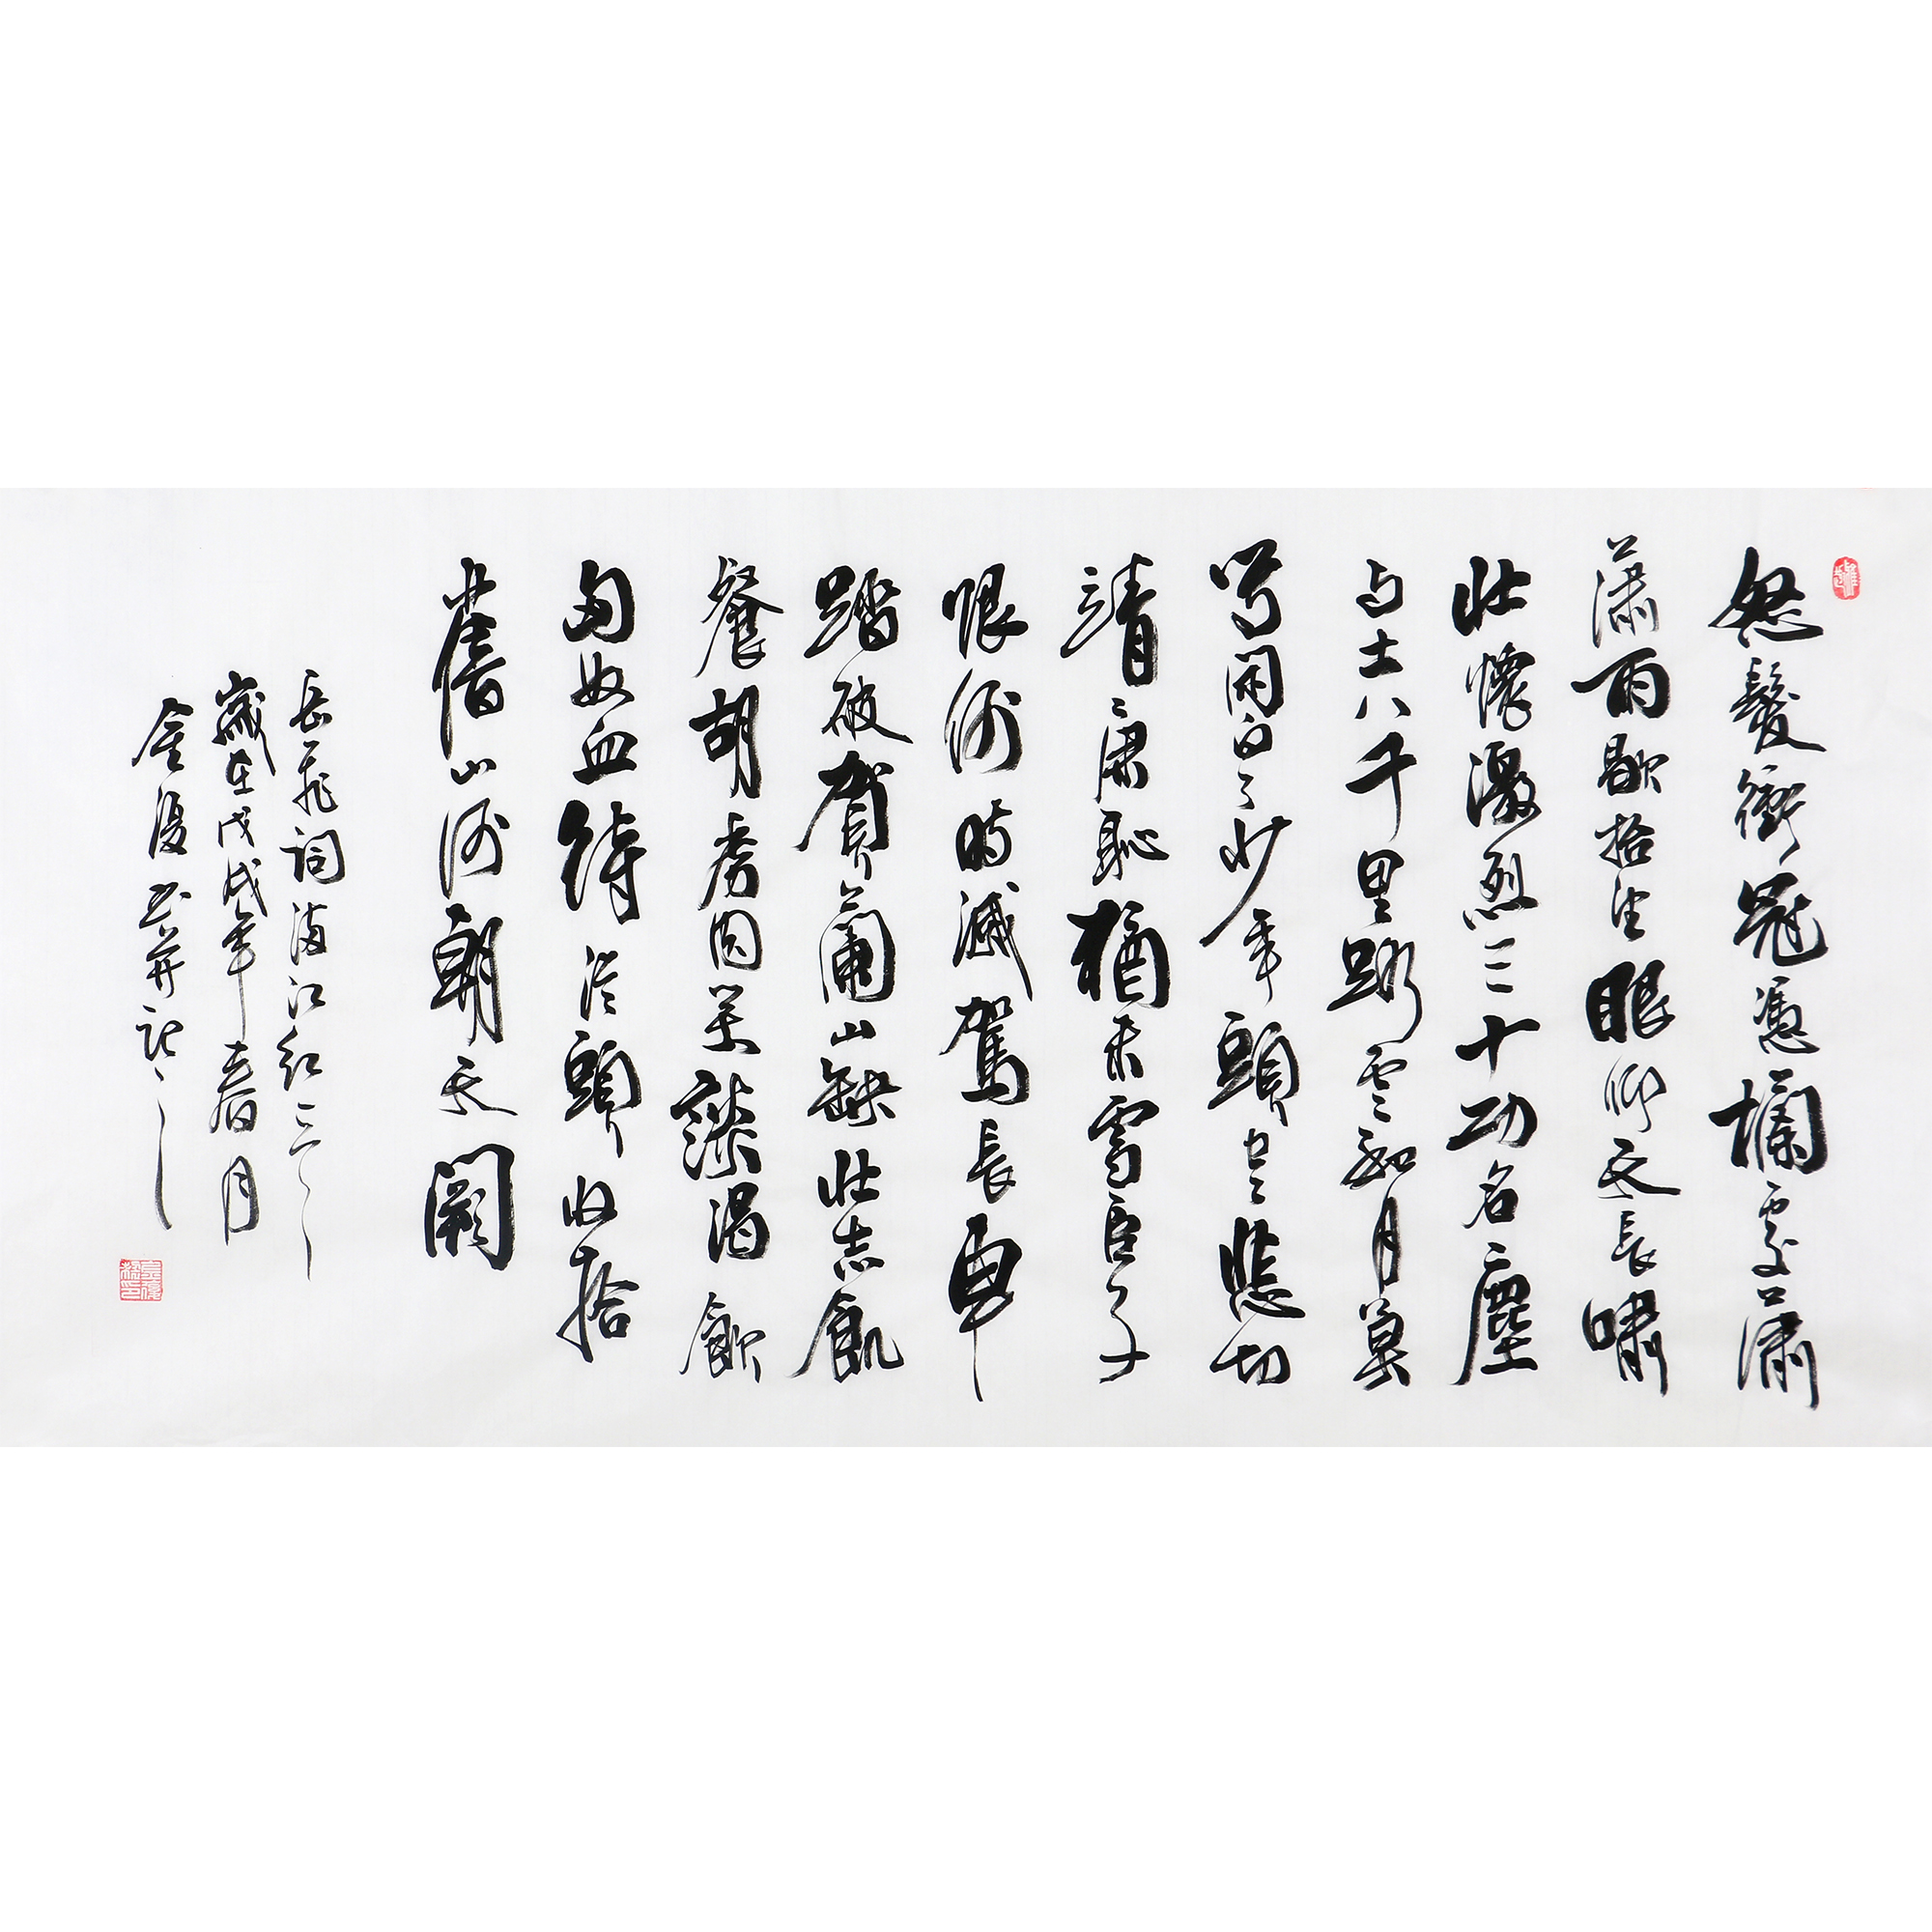 怒髮衝冠憑欄處瀟
瀟雨歇抬望眼仰天長嘯
壯懷激烈三十功名塵
与土八千里路雲和月莫
等閑白了少年頭空悲切
靖康恥猶未雪臣子
恨何時滅駕長車
踏破賀蘭山缺壯志飢
餐胡虜肉笑談渴飲
匈奴血待從頭收拾
舊山河朝天闕
岳飛詞滿江紅
歲在戊戌年春月
金書并記